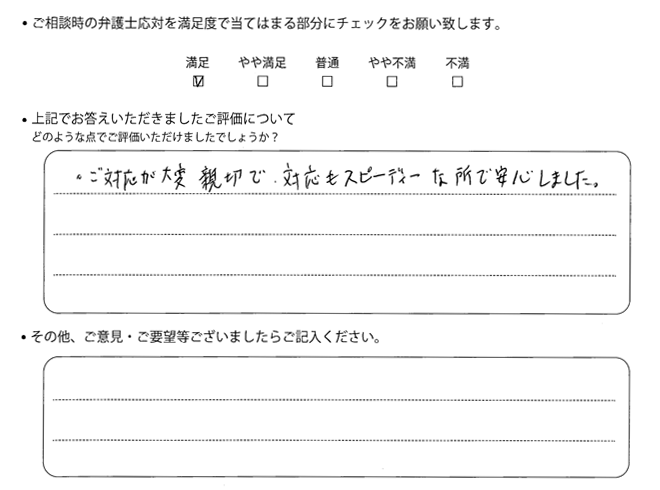 ・ご相談時の弁護士応対を満足度で当てはまる部分にチェックをお願い致します。
満足 やや満足 普通 やや不満 不満
・上記でお答えいただきましたご評価について
どのような点でご評価いただけましたでしょうか？
・ご対応が大変 親切で、対応もスピーディーな所で安心しました。
・その他、ご意見・ご要望等ございましたらご記入ください。